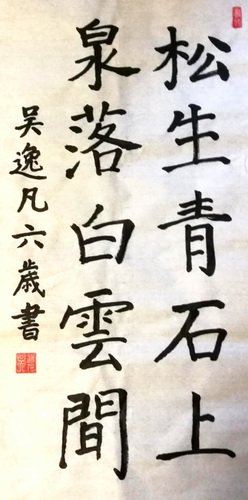 松生青石上
泉落白雲間
吴逸凡六歲書